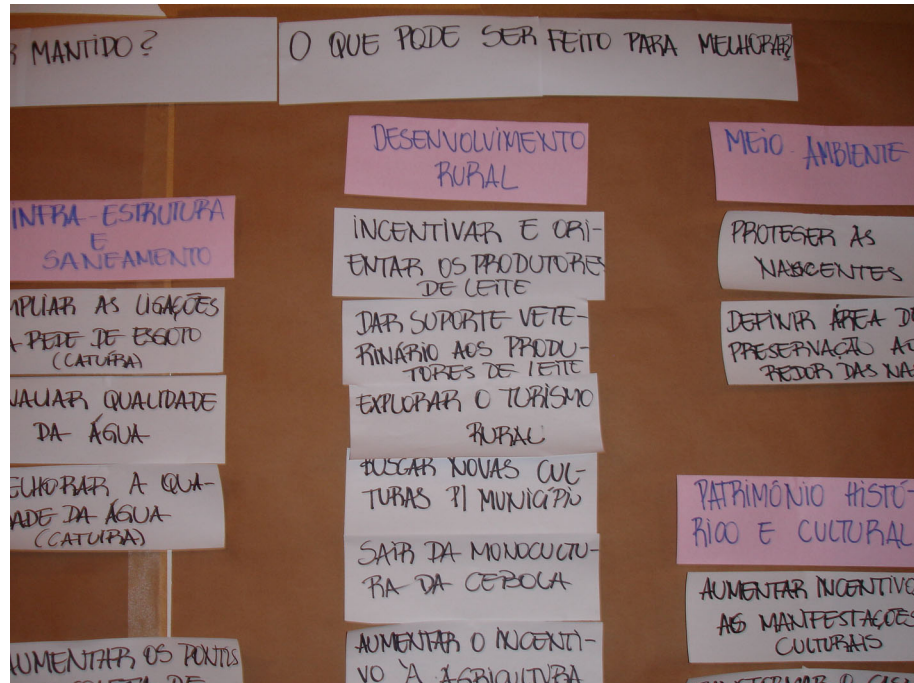 MANTIDO?
O QUE PODE SER FEITO PARA MELHORAR?
INFRA-ESTRUTURA
E
SANEAMENTO
MPLIAR AS LIGAÇÕES
REDE DE ESGOTO
(CATUÍRA)
VALIAR QUALIDADE
DA ÁGUA
ELHORAR A QUA-
ADE DA ÁGUA
(CATUIRA)
AUMENTAR OS PONTOS
DE
DESENVOLVIMENTO
RURAL
INCENTIVAR E ORI-
ENTAR OS PRODUTORES
DE LEITE
DAR SUPORTE VETE-
RINÁRIO AOS PRODU-
TORES DE LEITE
EXPLORAR O TURISMO
RURAL
BUSCAR NOVAS CUL-
TURAS P/ MUNICÍPIO
SAIR DA MONOCULTU-
RA DA CEBOLA
AUMENTAR O INCENTI-
VO À AGRICULTURA
MEIO AMBIENTE
PROTEGER AS
NASCENTES
DEFINIR ÁREA D
PRESERVAÇÃO AO
REDOR DAS NAS
PATRIMÔNIO HISTÓ-
RICO E CULTURAL
AUMENTAR INCENTIVO
AS MANIFESTAÇÕES
CULTURAIS